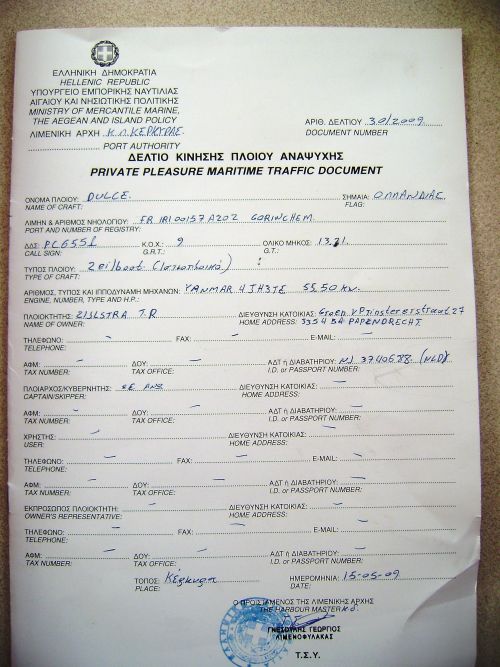 ΕΛΛΗΝΙΚΗ ΔΗΜΟΚΡΑΤΙΑ
HELLENIC REPUBLIC
ΥΠΟΥΡΓΕΙΟ ΕΜΠΟΡΙΚΗΣ ΝΑΥΤΙΛΙΑΣ
ΑΙΓΑΙΟΥ ΚΑΙ ΝΗΣΙΩΤΙΚΗΣ ΠΟΛΙΤΙΚΗΣ
MINISTRY OF MERCANTILE MARINE,
THE AEGEAN AND ISLAND POLICY
ΑΡΙΘ. ΔΕΛΤΙΟΥ 30/2009
DOCUMENT NUMBER
ΛΙΜΕΝΙΚΗ ΑΡΧΗ Κ.Λ. ΚΕΡΚΥΡΑΣ
PORT AUTHORITY
ΔΕΛΤΙΟ ΚΙΝΗΣΗΣ ΠΛΟΙΟΥ ΑΝΑΨΥΧΗΣ
PRIVATE PLEASURE MARITIME TRAFFIC DOCUMENT
ΟΝΟΜΑ ΠΛΟΙΟΥ: DULCE ΣΗΜΑΙΑ: ΟΛΛΑΝΔΙΑΣ
NAME OF CRAFT: FLAG:
ΛΙΜΗΝ & ΑΡΙΘΜΟΣ ΝΗΟΛΟΓΙΟΥ: GORINCHEM
PORT AND NUMBER OF REGISTRY:
ΔΔΣ: PC6551 Κ.Ο.Χ.: 9 ΟΛΙΚΟ ΜΗΚΟΣ:
CALL SIGN: G.R.T.: G.T.:
ΤΥΠΟΣ ΠΛΟΙΟΥ: Zeilboot (Ιστιοπλοικό)
TYPE OF CRAFT:
ΑΡΙΘΜΟΣ, ΤΥΠΟΣ ΚΑΙ ΙΠΠΟΔΥΝΑΜΗ ΜΗΧΑΝΩΝ: YANMAR 4JH3TE 55,50 kw.
ENGINE, NUMBER, TYPE AND H.P.:
ΠΛΟΙΟΚΤΗΤΗΣ: ZIJLSTRA T.R ΔΙΕΥΘΥΝΣΗ ΚΑΤΟΙΚΙΑΣ: Groen v Prinstererstraat 27
NAME OF OWNER: HOME ADDRESS: 3354 BA PAPENDRECHT
ΤΗΛΕΦΩΝΟ: – FAX: – E-MAIL: –
TELEPHONE:
ΑΦΜ: – ΔΟΥ: – ΑΔΤ ή ΔΙΑΒΑΤΗΡΙΟΥ: (NLD)
TAX NUMBER: TAX OFFICE: I.D. or PASSPORT NUMBER:
ΠΛΟΙΑΡΧΟΣ/ΚΥΒΕΡΝΗΤΗΣ: ΔΙΕΥΘΥΝΣΗ ΚΑΤΟΙΚΙΑΣ: –
CAPTAIN/SKIPPER: HOME ADDRESS:
ΑΦΜ: – ΔΟΥ: – ΑΔΤ ή ΔΙΑΒΑΤΗΡΙΟΥ: –
TAX NUMBER: TAX OFFICE: I.D. or PASSPORT NUMBER:
ΧΡΗΣΤΗΣ: – ΔΙΕΥΘΥΝΣΗ ΚΑΤΟΙΚΙΑΣ: –
USER: HOME ADDRESS:
ΤΗΛΕΦΩΝΟ: – FAX: – E-MAIL: –
TELEPHONE:
ΑΦΜ: – ΔΟΥ: – ΑΔΤ ή ΔΙΑΒΑΤΗΡΙΟΥ: –
TAX NUMBER: TAX OFFICE: I.D. or PASSPORT NUMBER:
ΕΚΠΡΟΣΩΠΟΣ ΠΛΟΙΟΚΤΗΤΗ: – ΔΙΕΥΘΥΝΣΗ ΚΑΤΟΙΚΙΑΣ: –
OWNER'S REPRESENTATIVE: HOME ADDRESS:
ΤΗΛΕΦΩΝΟ: – FAX: – E-MAIL: –
TELEPHONE:
ΑΦΜ: – ΔΟΥ: – ΑΔΤ ή ΔΙΑΒΑΤΗΡΙΟΥ: –
TAX NUMBER: TAX OFFICE: I.D. or PASSPORT NUMBER:
ΤΟΠΟΣ: Κέρκυρα ΗΜΕΡΟΜΗΝΙΑ: 15-05-09
PLACE: DATE:
Ο ΠΡΟΪΣΤΑΜΕΝΟΣ ΤΗΣ ΛΙΜΕΝΙΚΗΣ ΑΡΧΗΣ
THE HARBOUR MASTER
ΓΝΕΣΟΥΛΗΣ ΓΕΩΡΓΙΟΣ
ΛΙΜΕΝΟΦΥΛΑΚΑΣ
Τ.Σ.Υ.